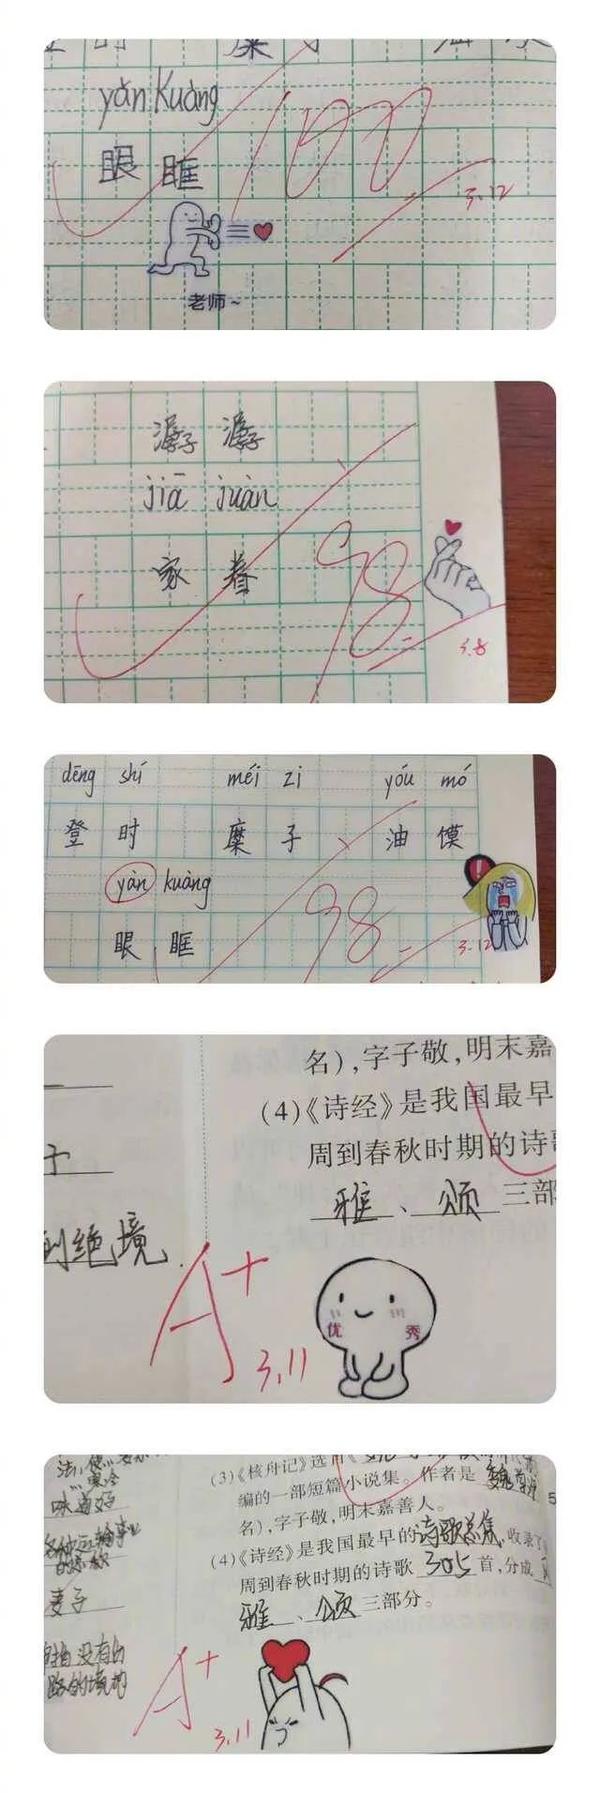 yǎn Kuàng
100
眼眶
3.12
老师~
潺潺
jiā juàn
家眷
98
3.8
dēng shí méi zi yóu mó
登时 糜子 油馍
yàn kuàng
98
眼眶
3.12
名),字子敬,明末嘉
(4)《诗经》是我国最早
周到春秋时期的诗
雅、颂三部
到绝境
A+
3.11
优秀
(3)《核舟记》选自《
编的一部短篇小说集。作者是
味道好
名),字子敬,明末嘉善人。
(4)《诗经》是我国最早的诗歌总集,收录了
周到春秋时期的诗歌305首,分成
麦子
雅、颂三部分。
没有出
A+
3.11